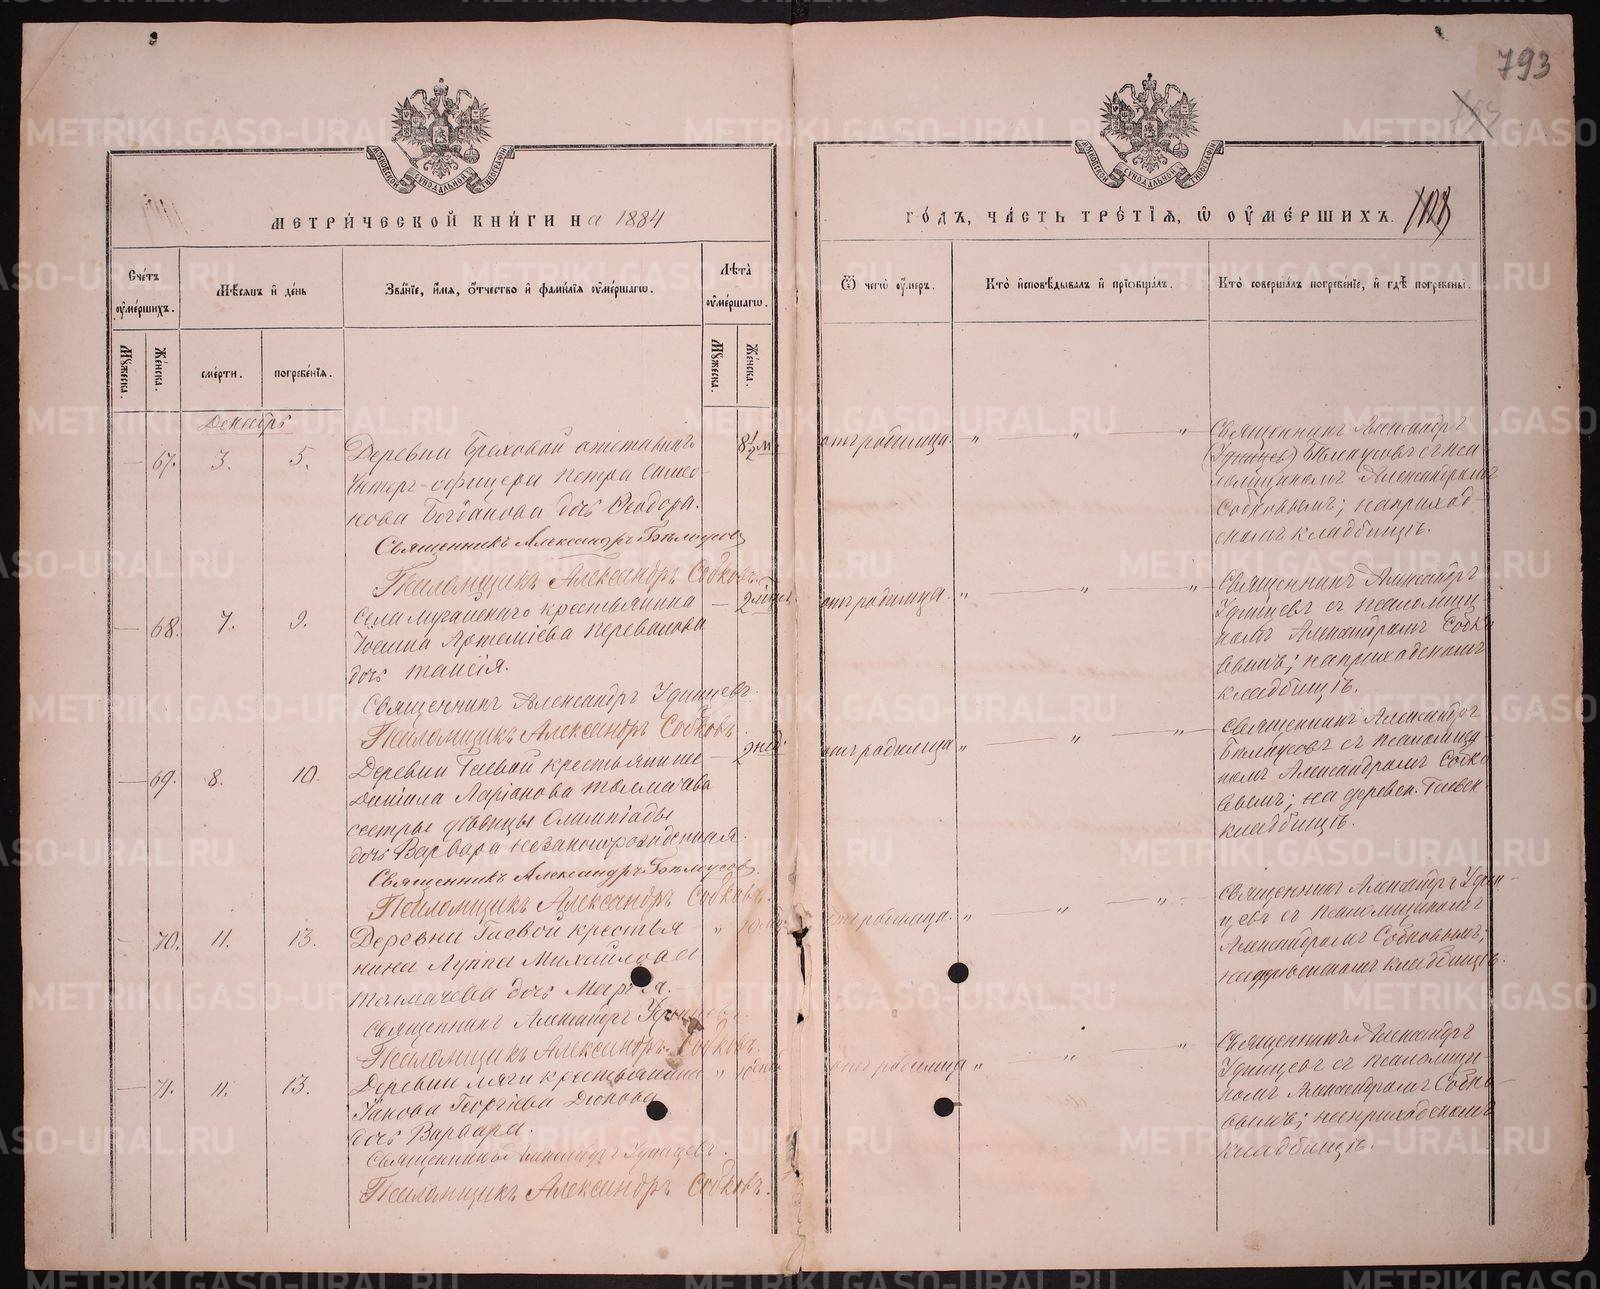 793
МЕТРИ́ЧЕСКОЙ КНИ́ГИ На 1884
ГО́ДЪ, ЧА́СТЬ ТРЕ́ТІѦ, Ѡ ОУМЕ́РШИХЪ.
Сче́тъ оумершихъ.
Мѣсяцъ и день
Зва́ніе, и́мя, о́тчество и фами́лія оуме́ршагѡ.
Лѣта̀ оуме́ршагѡ.
Ѿ чегѡ̀ оу́меръ.
Кто̀ и҆сповѣ́дывалъ и҆ прїѡбща́лъ.
Кто̀ соверша́лъ погребе́ніе, и҆ гдѣ̀ погребены̀.
Мꙋжеска.
Же́нска.
сме́рти.
погребе́нія.
Мꙋжеска.
Же́нска.
Декабрь
— 67. 3. 5.
Деревни Бреховой отставнаго
Унтер-офицера Петра Симео-
нова Богданова дочь Ѳеодора.
Священникъ Александръ Бѣлоусовъ
Псаломщикъ Александръ Собковъ.
8½ м.
отъ родимца. " " — "
Священникъ Александръ
(Удинцев) Бѣлоусовъ съ пса
ломщикомъ Александромъ
Собковымъ; на приход-
скомъ кладбищѣ.
— 68. 7. 9.
Села крестьянина
Іоанна Артеміева Перевалова
дочь Таисія.
Священникъ Александръ Удинцевъ.
Псаломщикъ Александръ Собковъ.
— 2
отъ родимца. " — " — "
Священникъ Александръ
Удинцевъ съ псаломщи
комъ Александромъ Собко
вымъ; на приходскомъ
кладбищѣ.
— 69. 8. 10.
Деревни Гаевой крестьянина
Даніила Ларіонова Толмачева
сестры дѣвицы Олимпіады
дочь Варвара незаконнорожденная.
Священникъ Александръ Бѣлоусовъ.
Псаломщикъ Александръ Собковъ.
— 2 нед.
отъ родимца " — " — "
Священникъ Александръ
Бѣлоусовъ съ псаломщи
комъ Александромъ Собко
вымъ; на деревен. Гаевск.
кладбищѣ.
— 70. 11. 13.
Деревни Гаевой крестья
нина Луппа Михайлова
Толмачева дочь Марія.
Священникъ Александръ Удинцевъ.
Псаломщикъ Александръ Собковъ.
" 10
отъ родимца. " — " — "
Священникъ Александръ Удин-
цевъ съ псаломщикомъ
Александромъ Собковымъ;
на деревенскомъ кладбищѣ.
— 71. 11. 13.
Деревни крестьянина
Іакова Георгіева Дюкова
дочь Варвара.
Священникъ Александръ Удинцевъ.
Псаломщикъ Александръ Собковъ.
"
отъ родимца " — " — "
Священникъ Александръ
Удинцевъ съ псаломщи-
комъ Александромъ Собко-
вымъ; на приходскомъ
кладбищѣ.
METRIKI.GASO-URAL.RU